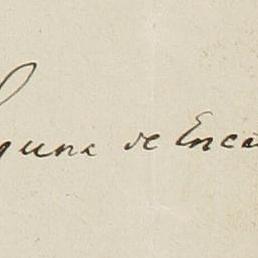 guna de Enca